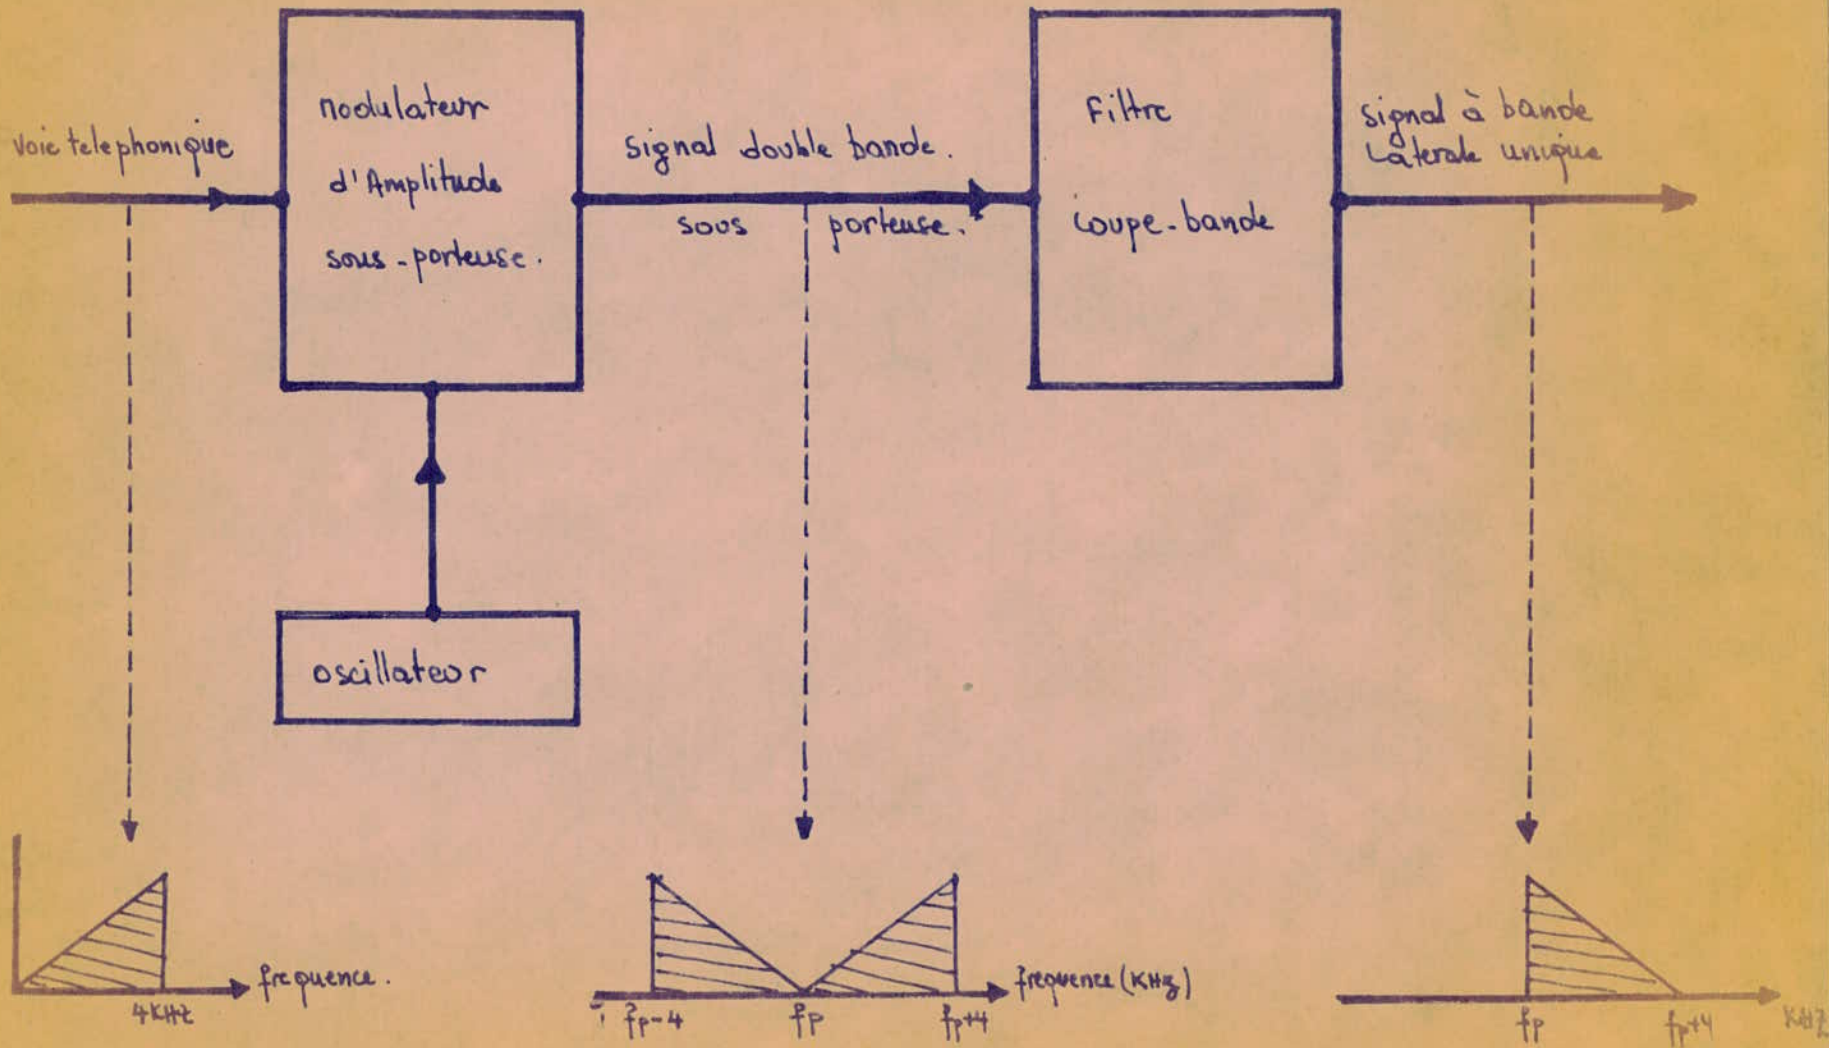 Voie telephonique
modulateur
d'Amplitude
sous-porteuse.
signal double bande.
sous porteuse.
Filtre
coupe-bande
signal à bande
Laterale unique
oscillateur
4KHZ
frequence.
fp-4
fp
fp+4
frequence (KHz)
fp
fp+4
KHZ